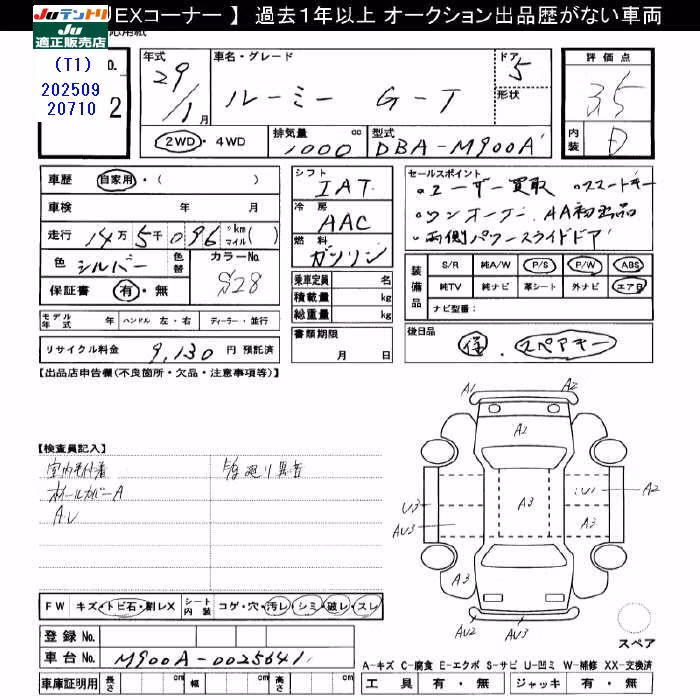 EXコーナー 】 過去1年以上 オークション出品歴がない車両
Juテントリ
Ju
適正販売店
(T1)
202509
20710
No.
2
年式 29/1月
車名・グレード ルーミー G-T
ドア 5
形状
評価点 3.5
2WD・4WD
排気量 1000 cc
型式 DBA-M900A
内装 D
車歴 自家用・( )
シフト IAT
セールスポイント
・ユーザー買取 ・スマートキー
・ワンオーナー、AA初出品
・両側パワースライドドア
車検 年 月
冷房 AAC
走行 14万5千096 km(マイル)
燃料 ガソリン
色 シルバー
色替
カラーNo. S28
保証書 有・無
乗車定員 名
積載量 kg
総重量 kg
装備品
S/R 純A/W P/S P/W ABS
純TV 純ナビ 革シート 外ナビ エアB
ナビ型番:
モデル年式 年 ハンドル 左・右 ディーラー・並行
書類期限 月 日
後日品 保、スペアキー
リサイクル料金 9,130 円 預託済
【出品店申告欄(不良箇所・欠品・注意事項等)】
【検査員記入】
室内
ホイールカバーA
廻り異音
A1 A2
A2
A3
U1 A2
U3
AU3
A3
A3
AU2 AU3
FW キズ・トビ石・割レX シート内装 コゲ・穴・汚レ・シミ・破レ・スレ
スペア
登録 No.
車台 No. M900A-0025641
A-キズ C-腐食 E-エクボ S-サビ U-凹ミ W-補修 XX-交換済
車庫証明用 長さ cm 幅 cm 高さ cm
工具 有・無 ジャッキ 有・無